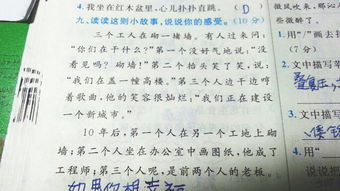 4.我坐在红木盆里,心儿扑扑直跳。 (D)
九、读读这则小故事,说说你的感受。(10分)
三个工人在砌一堵墙。有人过来问:
"你们在干什么?"第一个没好气地说:"没
看见吗?砌墙!"第二个抬头笑了笑,说:
"我们在盖一幢高楼。"第三个人边干边哼
着歌曲,他的笑容很灿烂:"我们正在建设
一个新城市。"
10年后,第一个人在另一个工地上砌
墙;第二个人坐在办公室中画图纸,他成了
工程师;第三个人呢,是前两个人的老板。
微风吹来,那沁
些微醉了。
用"/"画去括
(7分)
2.文中描写
3.文中描写
4.用"
说说把